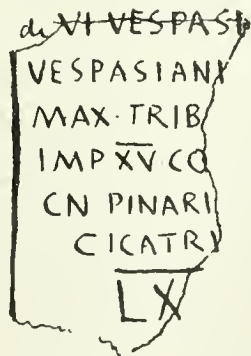 di VI VESPASI
VESPASIANI
MAX·TRIB
IMP X̅V̅ CO
CN PINARI
CICATRI
L̅X̅